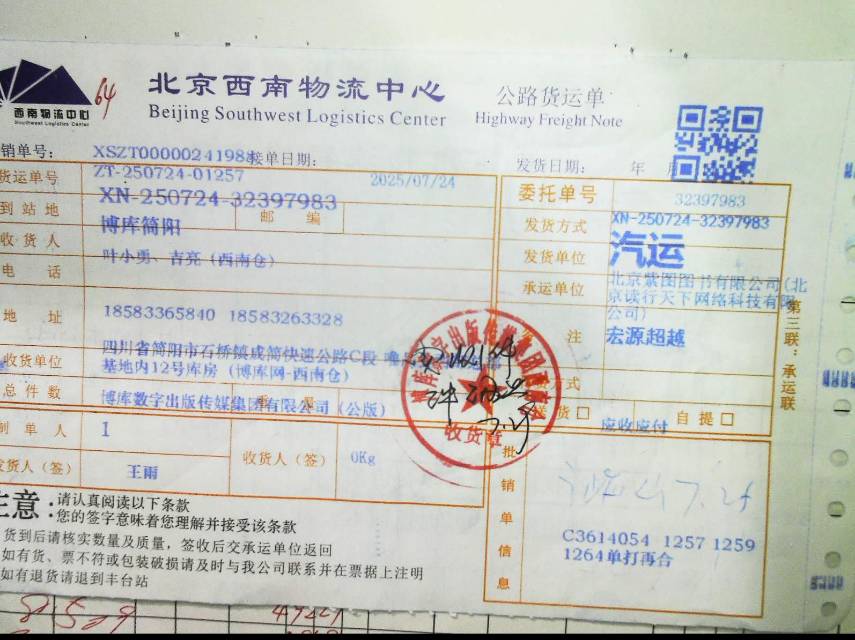 西南物流中心
Southwest Logistics Center
64
北京西南物流中心
Beijing Southwest Logistics Center
公路货运单
Highway Freight Note
销单号： XSZT0000024198 接单日期： 发货日期： 年 月
货运单号 ZT-250724-01257 2025/07/24
委托单号 32397983
到站地 XN-250724-32397983 邮 编
发货方式 XN-250724-32397983
收货人 博库简阳
发货单位 汽运
电 话 叶小勇、吉亮（西南仓）
承运单位 北京紫图图书有限公司(北京读行天下网络科技有限公司)
地 址 18583365840 18583263328
注 宏源超越
收货单位 四川省简阳市石桥镇成简快速公路C段
基地内12号库房（博库网-西南仓）
方式
总件数 博库数字出版传媒集团有限公司（公版）
重 量
送货□ 应收应付 自提□
制单人 1
发货人（签） 王雨
收货人（签） 0Kg
收货章
批销单信息
C3614054 1257 1259
1264单打再合
第三联：承运联
注意：
请认真阅读以下条款
您的签字意味着您理解并接受该条款
货到后请核实数量及质量，签收后交承运单位返回
如有货、票不符或包装破损请及时与我公司联系并在票据上注明
如有退货请退到丰台站